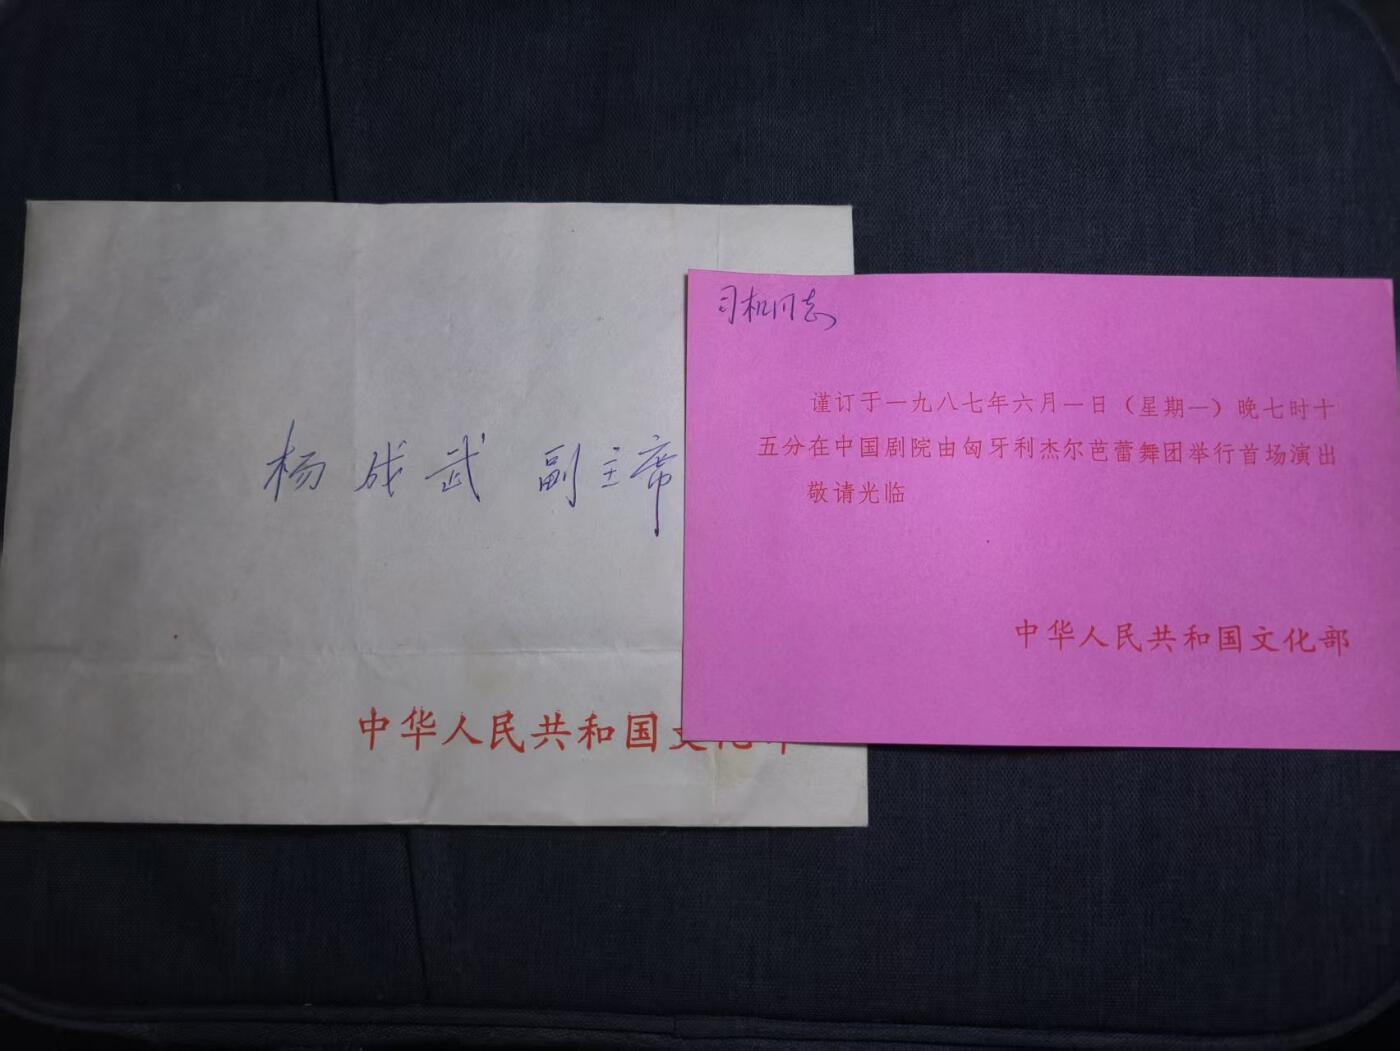 杨成武 副主席
中华人民共和国文化部
司机同志
谨订于一九八七年六月一日（星期一）晚七时十
五分在中国剧院由匈牙利杰尔芭蕾舞团举行首场演出
敬请光临
中华人民共和国文化部